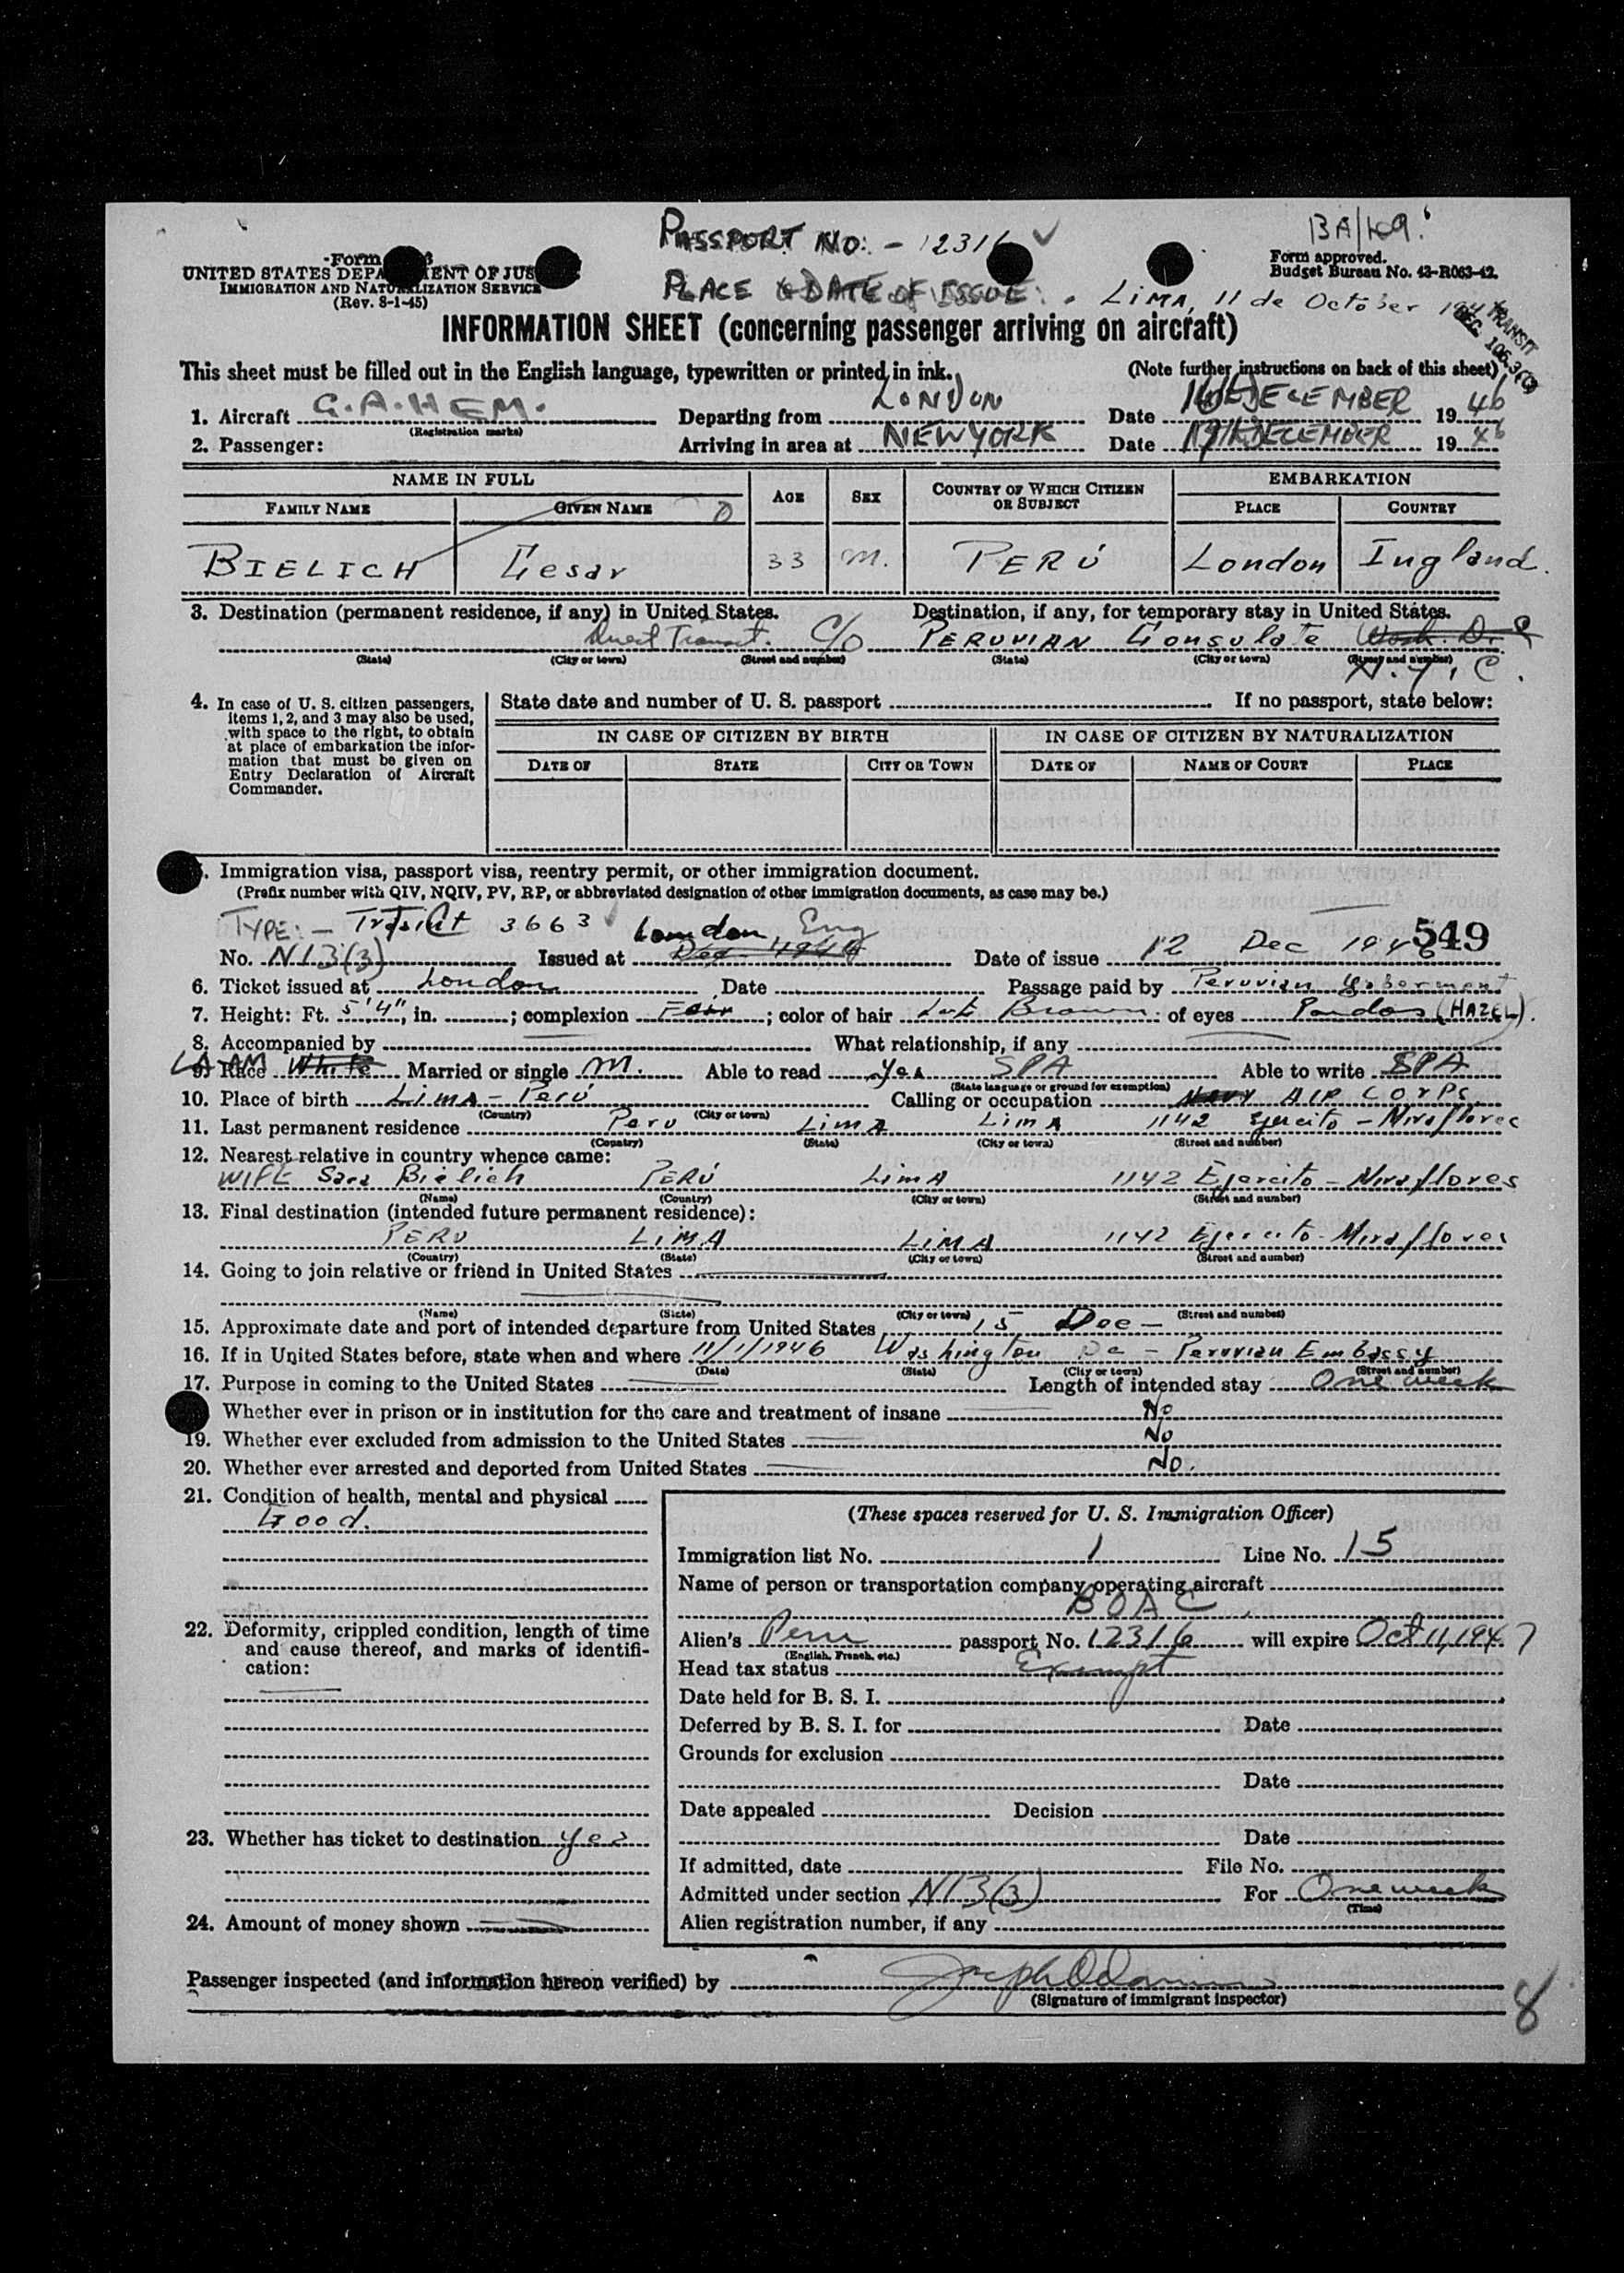 BA/109
PASSPORT NO:- 12316
Form
UNITED STATES DEPA ENT OF JUS
IMMIGRATION AND NATURALIZATION SERVICE
(Rev. 8-1-45)
Form approved.
Budget Bureau No. 43-R063-42.
PLACE & DATE OF ISSUE: LIMA, 11 de October
TRANSIT
INFORMATION SHEET (concerning passenger arriving on aircraft)
This sheet must be filled out in the English language, typewritten or printed in ink. (Note further instructions on back of this sheet)
1. Aircraft G.A.HEM. Departing from LONDON Date DECEMBER 1946
(Registration marks)
2. Passenger: Arriving in area at NEW YORK Date DECEMBER 19
NAME IN FULL AGE SEX COUNTRY OF WHICH CITIZEN OR SUBJECT EMBARKATION
FAMILY NAME GIVEN NAME PLACE COUNTRY
BIELICH Cesar 33 M. PERÚ London England.
3. Destination (permanent residence, if any) in United States. Destination, if any, for temporary stay in United States.
Direct Transit. C/O PERUVIAN Consulate Wash. D.C
(State) (City or town) (Street and number) (State) (City or town) (Street and number)
N.Y.C.
4. In case of U. S. citizen passengers, items 1, 2, and 3 may also be used, with space to the right, to obtain at place of embarkation the information that must be given on Entry Declaration of Aircraft Commander.
State date and number of U. S. passport If no passport, state below:
IN CASE OF CITIZEN BY BIRTH IN CASE OF CITIZEN BY NATURALIZATION
DATE OF STATE CITY OR TOWN DATE OF NAME OF COURT PLACE
. Immigration visa, passport visa, reentry permit, or other immigration document.
(Prefix number with QIV, NQIV, PV, RP, or abbreviated designation of other immigration documents, as case may be.)
TYPE:- Transit 3663 London, Eng
549
No. N13(3) Issued at Date of issue 12 Dec
6. Ticket issued at London Date Passage paid by Peruvian Goberment
7. Height: Ft. 5'4", in. ; complexion Fair ; color of hair Brown of eyes Pardos (HAZEL).
8. Accompanied by What relationship, if any
LA AM
9. Race White Married or single M. Able to read Yes SPA Able to write SPA
(State language or ground for exemption)
10. Place of birth LIMA - Perú Calling or occupation Navy AIR CORPS
(Country) (City or town)
11. Last permanent residence Peru LIMA LIMA 1142 Ejercito - Miraflores
(Country) (State) (City or town) (Street and number)
12. Nearest relative in country whence came:
WIFE Sara Bielich PERÚ LIMA 1142 Ejercito - Miraflores
(Name) (Country) (City or town) (Street and number)
13. Final destination (intended future permanent residence):
PERU LIMA LIMA 1142 Ejercito - Miraflores
(Country) (State) (City or town) (Street and number)
14. Going to join relative or friend in United States
(Name) (State) (City or town) (Street and number)
15. Approximate date and port of intended departure from United States 15 Dec -
16. If in United States before, state when and where 11/1/1946 Washington Dc - Peruvian Embassy
(Date) (State) (City or town) (Street and number)
17. Purpose in coming to the United States Length of intended stay One week
Whether ever in prison or in institution for the care and treatment of insane No
19. Whether ever excluded from admission to the United States No
20. Whether ever arrested and deported from United States No.
21. Condition of health, mental and physical
Good.
22. Deformity, crippled condition, length of time and cause thereof, and marks of identification:
23. Whether has ticket to destination yes
24. Amount of money shown
(These spaces reserved for U. S. Immigration Officer)
Immigration list No. 1 Line No. 15
Name of person or transportation company operating aircraft
BOAC
Alien's Peru passport No. 12316 will expire Oct 11, 1947
(English, French, etc.)
Head tax status Exempt
Date held for B. S. I.
Deferred by B. S. I. for Date
Grounds for exclusion
Date
Date appealed Decision
Date
If admitted, date File No.
Admitted under section N13(3) For One week
(Time)
Alien registration number, if any
Passenger inspected (and information hereon verified) by
(Signature of immigrant inspector)
8